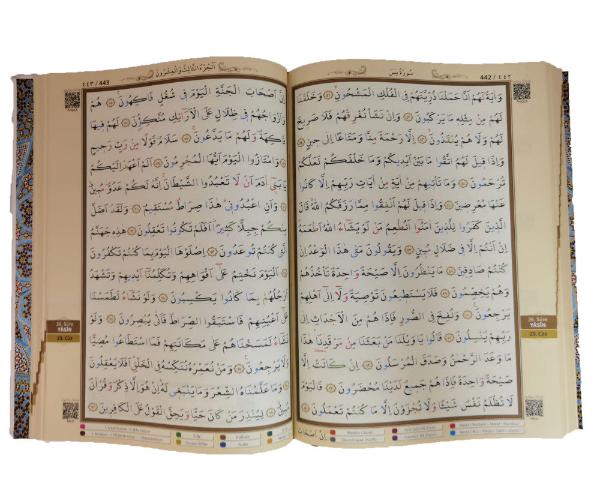 ٤٤٢ / 442 سُورَةُ يٰسٓ
وَاٰيَةٌ لَهُمْ اَنَّا حَمَلْنَا ذُرِّيَّتَهُمْ فِي الْفُلْكِ الْمَشْحُونِ ﴿٤١﴾ وَخَلَقْنَا
لَهُمْ مِنْ مِثْلِهِ مَا يَرْكَبُونَ ﴿٤٢﴾ وَاِنْ نَشَأْ نُغْرِقْهُمْ فَلَا صَرِيخَ
لَهُمْ وَلَا هُمْ يُنْقَذُونَ ﴿٤٣﴾ اِلَّا رَحْمَةً مِنَّا وَمَتَاعًا اِلٰى حِينٍ ﴿٤٤﴾
وَاِذَا قِيلَ لَهُمُ اتَّقُوا مَا بَيْنَ اَيْدِيكُمْ وَمَا خَلْفَكُمْ لَعَلَّكُمْ
تُرْحَمُونَ ﴿٤٥﴾ وَمَا تَأْتِيهِمْ مِنْ اٰيَةٍ مِنْ اٰيَاتِ رَبِّهِمْ اِلَّا كَانُوا
عَنْهَا مُعْرِضِينَ ﴿٤٦﴾ وَاِذَا قِيلَ لَهُمْ اَنْفِقُوا مِمَّا رَزَقَكُمُ اللّٰهُ قَالَ
الَّذِينَ كَفَرُوا لِلَّذِينَ اٰمَنُوا اَنُطْعِمُ مَنْ لَوْ يَشَاءُ اللّٰهُ اَطْعَمَهُ
اِنْ اَنْتُمْ اِلَّا فِي ضَلَالٍ مُبِينٍ ﴿٤٧﴾ وَيَقُولُونَ مَتٰى هٰذَا الْوَعْدُ اِنْ
كُنْتُمْ صَادِقِينَ ﴿٤٨﴾ مَا يَنْظُرُونَ اِلَّا صَيْحَةً وَاحِدَةً تَأْخُذُهُمْ
وَهُمْ يَخِصِّمُونَ ﴿٤٩﴾ فَلَا يَسْتَطِيعُونَ تَوْصِيَةً وَلَا اِلٰى اَهْلِهِمْ
يَرْجِعُونَ ﴿٥٠﴾ وَنُفِخَ فِي الصُّورِ فَاِذَا هُمْ مِنَ الْاَجْدَاثِ اِلٰى
رَبِّهِمْ يَنْسِلُونَ ﴿٥١﴾ قَالُوا يَا وَيْلَنَا مَنْ بَعَثَنَا مِنْ مَرْقَدِنَا هٰذَا
مَا وَعَدَ الرَّحْمٰنُ وَصَدَقَ الْمُرْسَلُونَ ﴿٥٢﴾ اِنْ كَانَتْ اِلَّا
صَيْحَةً وَاحِدَةً فَاِذَا هُمْ جَمِيعٌ لَدَيْنَا مُحْضَرُونَ ﴿٥٣﴾ فَالْيَوْمَ
لَا تُظْلَمُ نَفْسٌ شَيْئًا وَلَا تُجْزَوْنَ اِلَّا مَا كُنْتُمْ تَعْمَلُونَ ﴿٥٤﴾
اِنَّ اَصْحَابَ
36. Sûre
YÂSÎN
23. Cüz
اَلْجُزْءُ الثَّالِثُ وَالْعِشْرُونَ ٤٤٣ / 443
اِنَّ اَصْحَابَ الْجَنَّةِ الْيَوْمَ فِي شُغُلٍ فَاكِهُونَ ﴿٥٥﴾ هُمْ
وَاَزْوَاجُهُمْ فِي ظِلَالٍ عَلَى الْاَرَائِكِ مُتَّكِؤُنَ ﴿٥٦﴾ لَهُمْ فِيهَا
فَاكِهَةٌ وَلَهُمْ مَا يَدَّعُونَ ﴿٥٧﴾ سَلَامٌ قَوْلًا مِنْ رَبٍّ رَحِيمٍ ﴿٥٨﴾
وَامْتَازُوا الْيَوْمَ اَيُّهَا الْمُجْرِمُونَ ﴿٥٩﴾ اَلَمْ اَعْهَدْ اِلَيْكُمْ
يَا بَنِي اٰدَمَ اَنْ لَا تَعْبُدُوا الشَّيْطَانَ اِنَّهُ لَكُمْ عَدُوٌّ مُبِينٌ ﴿٦٠﴾
وَاَنِ اعْبُدُونِي هٰذَا صِرَاطٌ مُسْتَقِيمٌ ﴿٦١﴾ وَلَقَدْ اَضَلَّ
مِنْكُمْ جِبِلًّا كَثِيرًا اَفَلَمْ تَكُونُوا تَعْقِلُونَ ﴿٦٢﴾ هٰذِهِ جَهَنَّمُ
الَّتِي كُنْتُمْ تُوعَدُونَ ﴿٦٣﴾ اِصْلَوْهَا الْيَوْمَ بِمَا كُنْتُمْ تَكْفُرُونَ
﴿٦٤﴾ اَلْيَوْمَ نَخْتِمُ عَلٰى اَفْوَاهِهِمْ وَتُكَلِّمُنَا اَيْدِيهِمْ وَتَشْهَدُ
اَرْجُلُهُمْ بِمَا كَانُوا يَكْسِبُونَ ﴿٦٥﴾ وَلَوْ نَشَاءُ لَطَمَسْنَا
عَلٰى اَعْيُنِهِمْ فَاسْتَبَقُوا الصِّرَاطَ فَاَنّٰى يُبْصِرُونَ ﴿٦٦﴾ وَلَوْ
نَشَاءُ لَمَسَخْنَاهُمْ عَلٰى مَكَانَتِهِمْ فَمَا اسْتَطَاعُوا مُضِيًّا
وَلَا يَرْجِعُونَ ﴿٦٧﴾ وَمَنْ نُعَمِّرْهُ نُنَكِّسْهُ فِي الْخَلْقِ اَفَلَا يَعْقِلُونَ
﴿٦٨﴾ وَمَا عَلَّمْنَاهُ الشِّعْرَ وَمَا يَنْبَغِي لَهُ اِنْ هُوَ اِلَّا ذِكْرٌ وَقُرْاٰنٌ
مُبِينٌ ﴿٦٩﴾ لِيُنْذِرَ مَنْ كَانَ حَيًّا وَيَحِقَّ الْقَوْلُ عَلَى الْكَافِرِينَ ﴿٧٠﴾
36. Sûre
YÂSÎN
23. Cüz